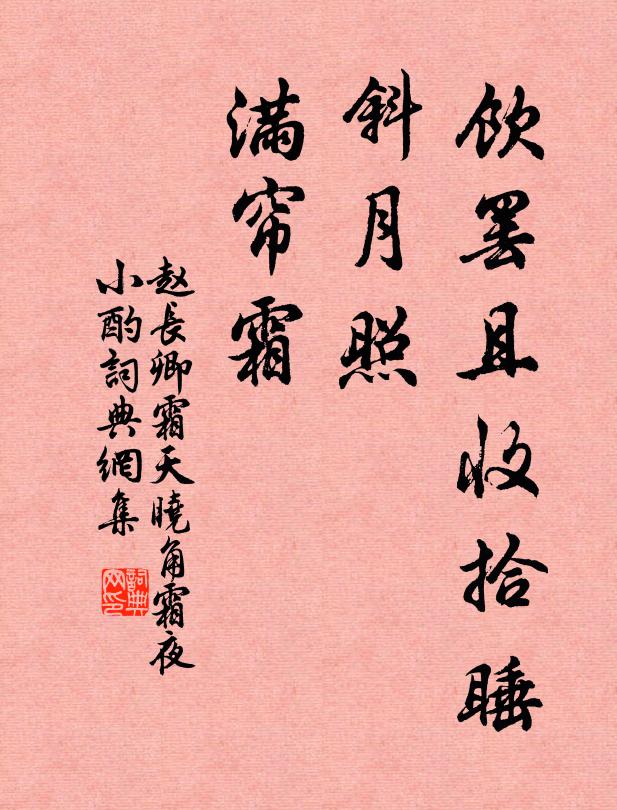 饮罢且收拾睡
斜月照
满帘霜
赵長卿霜天曉角霜夜
小酌詞典網集
詞典
网印